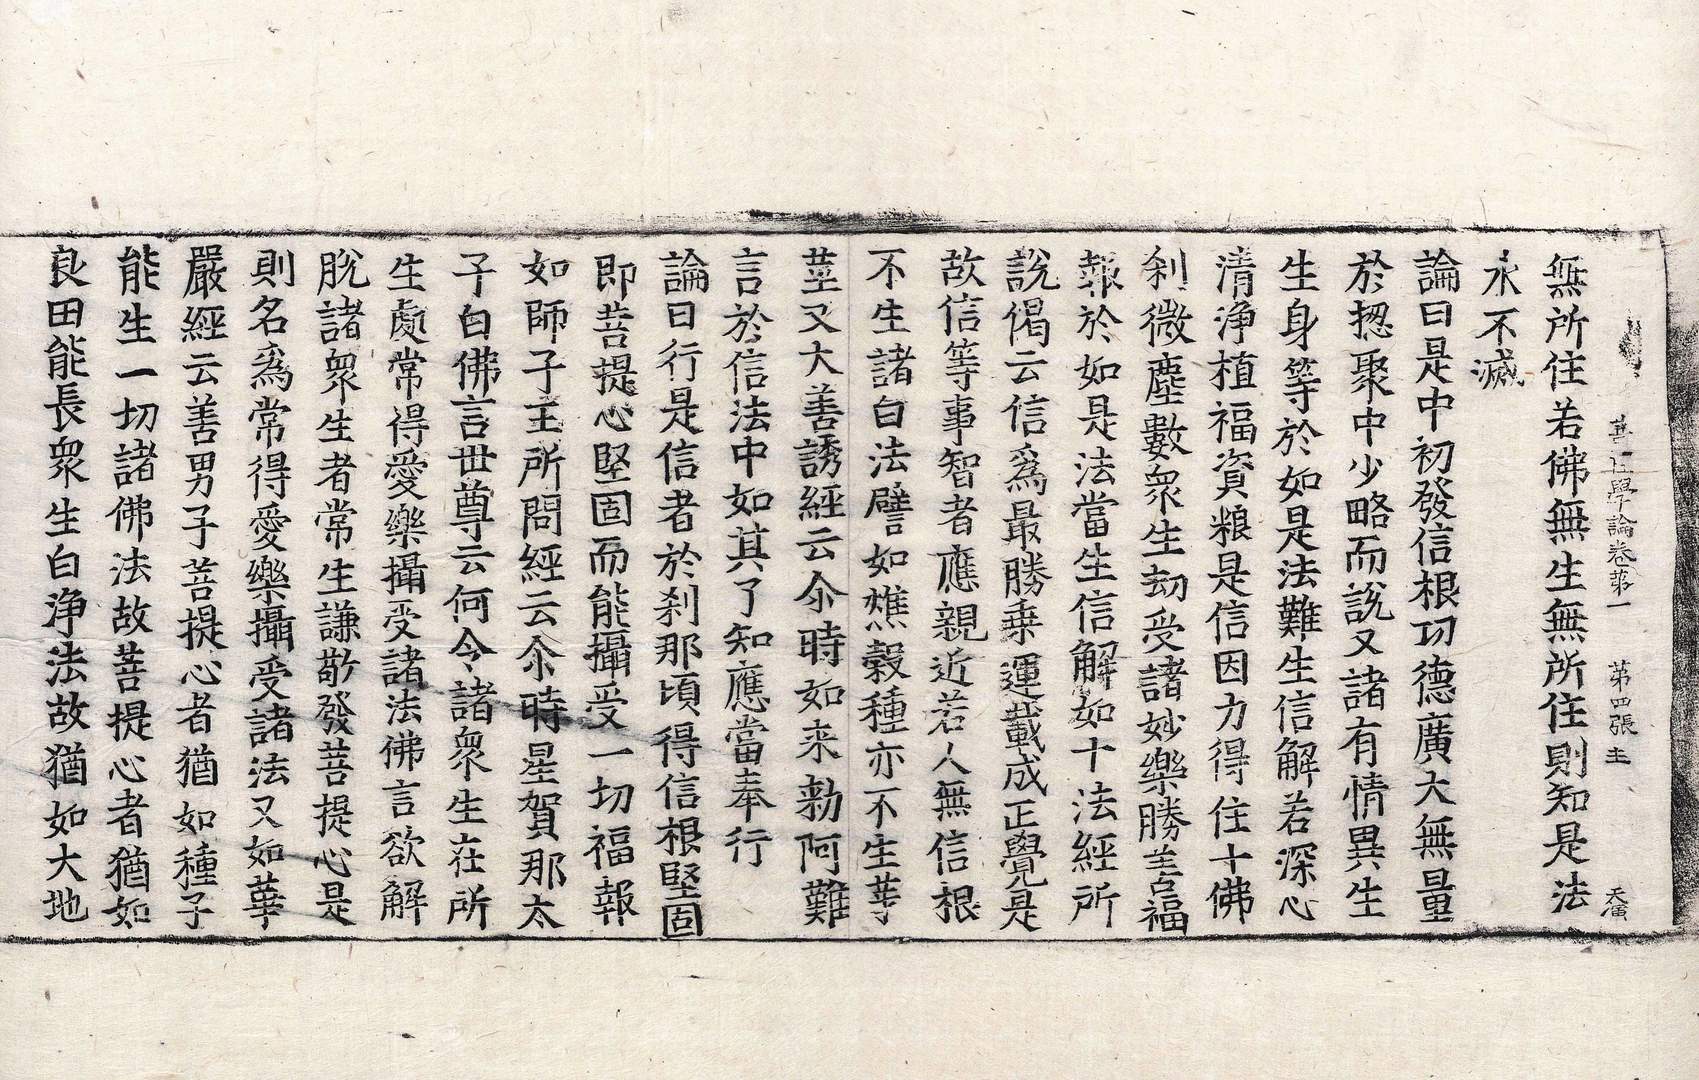 學論卷第一　第四張　主
無所住若佛無生無所住則知是法
永不滅
論曰是中初發信根功德廣大無量
於揔聚中少略而說又諸有情異生
生身等於如是法難生信解若深心
清淨植福資粮是信因力得住十佛
刹微塵數衆生劫受諸妙樂勝善福
報於如是法當生信解如十法經所
說偈云信爲最勝乗運載成正覺是
故信等事智者應親近若人無信根
不生諸白法譬如燋穀種亦不生芽
莖又大善誘經云尒時如来勅阿難
言於信法中如其了知應當奉行
論曰行是信者於刹那頃得信根堅固
即菩提心堅固而能攝受一切福報
如師子王所問經云尒時星賀那太
子白佛言世尊云何令諸衆生在所
生處常得愛樂攝受諸法佛言欲解
脫諸衆生者常生謙敬發菩提心是
則名爲常得愛樂攝受諸法又如華
嚴經云善男子菩提心者猶如種子
能生一切諸佛法故菩提心者猶如
良田能長衆生白淨法故猶如大地